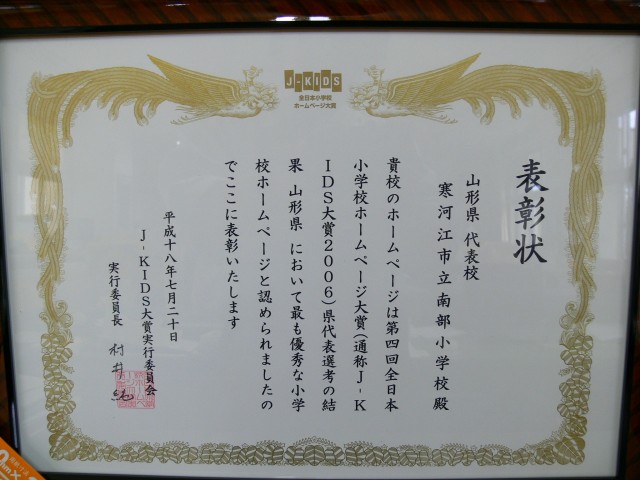 J-KIDS
全日本小学校
ホームページ大賞
表彰状
山形県 代表校
寒河江市立南部小学校殿
貴校のホームページは第四回全日本
小学校ホームページ大賞(通称J-K
IDS大賞2006)県代表選考の結
果 山形県 において最も優秀な小学
校ホームページと認められましたの
でここに表彰いたします
平成十八年七月二十日
J-KIDS大賞実行委員会
実行委員長 村井 純